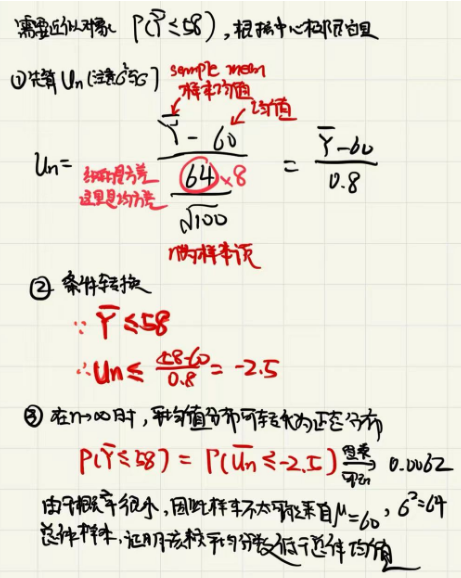 需要近似对象 P(Ȳ≤58),根据中心极限定理
①先算 Un (注意σ²与σ)
sample mean
样本均值
均值
Un = (Ȳ - 60) / (64 ×8 / √100) = (Ȳ-60) / 0.8
这里是均方差
n为样本项
② 条件转换
∵ Ȳ ≤58
∴ Un ≤ (58-60) / 0.8 = -2.5
③ 在n→∞时,平均值分布可转化为正态分布
P(Ȳ≤58) = P(Un ≤-2.5) 查表可知 0.0062
由于概率很小,因此样本不太可能来自μ=60, σ²=64
总体样本,证明该校平均分数低于总体均值